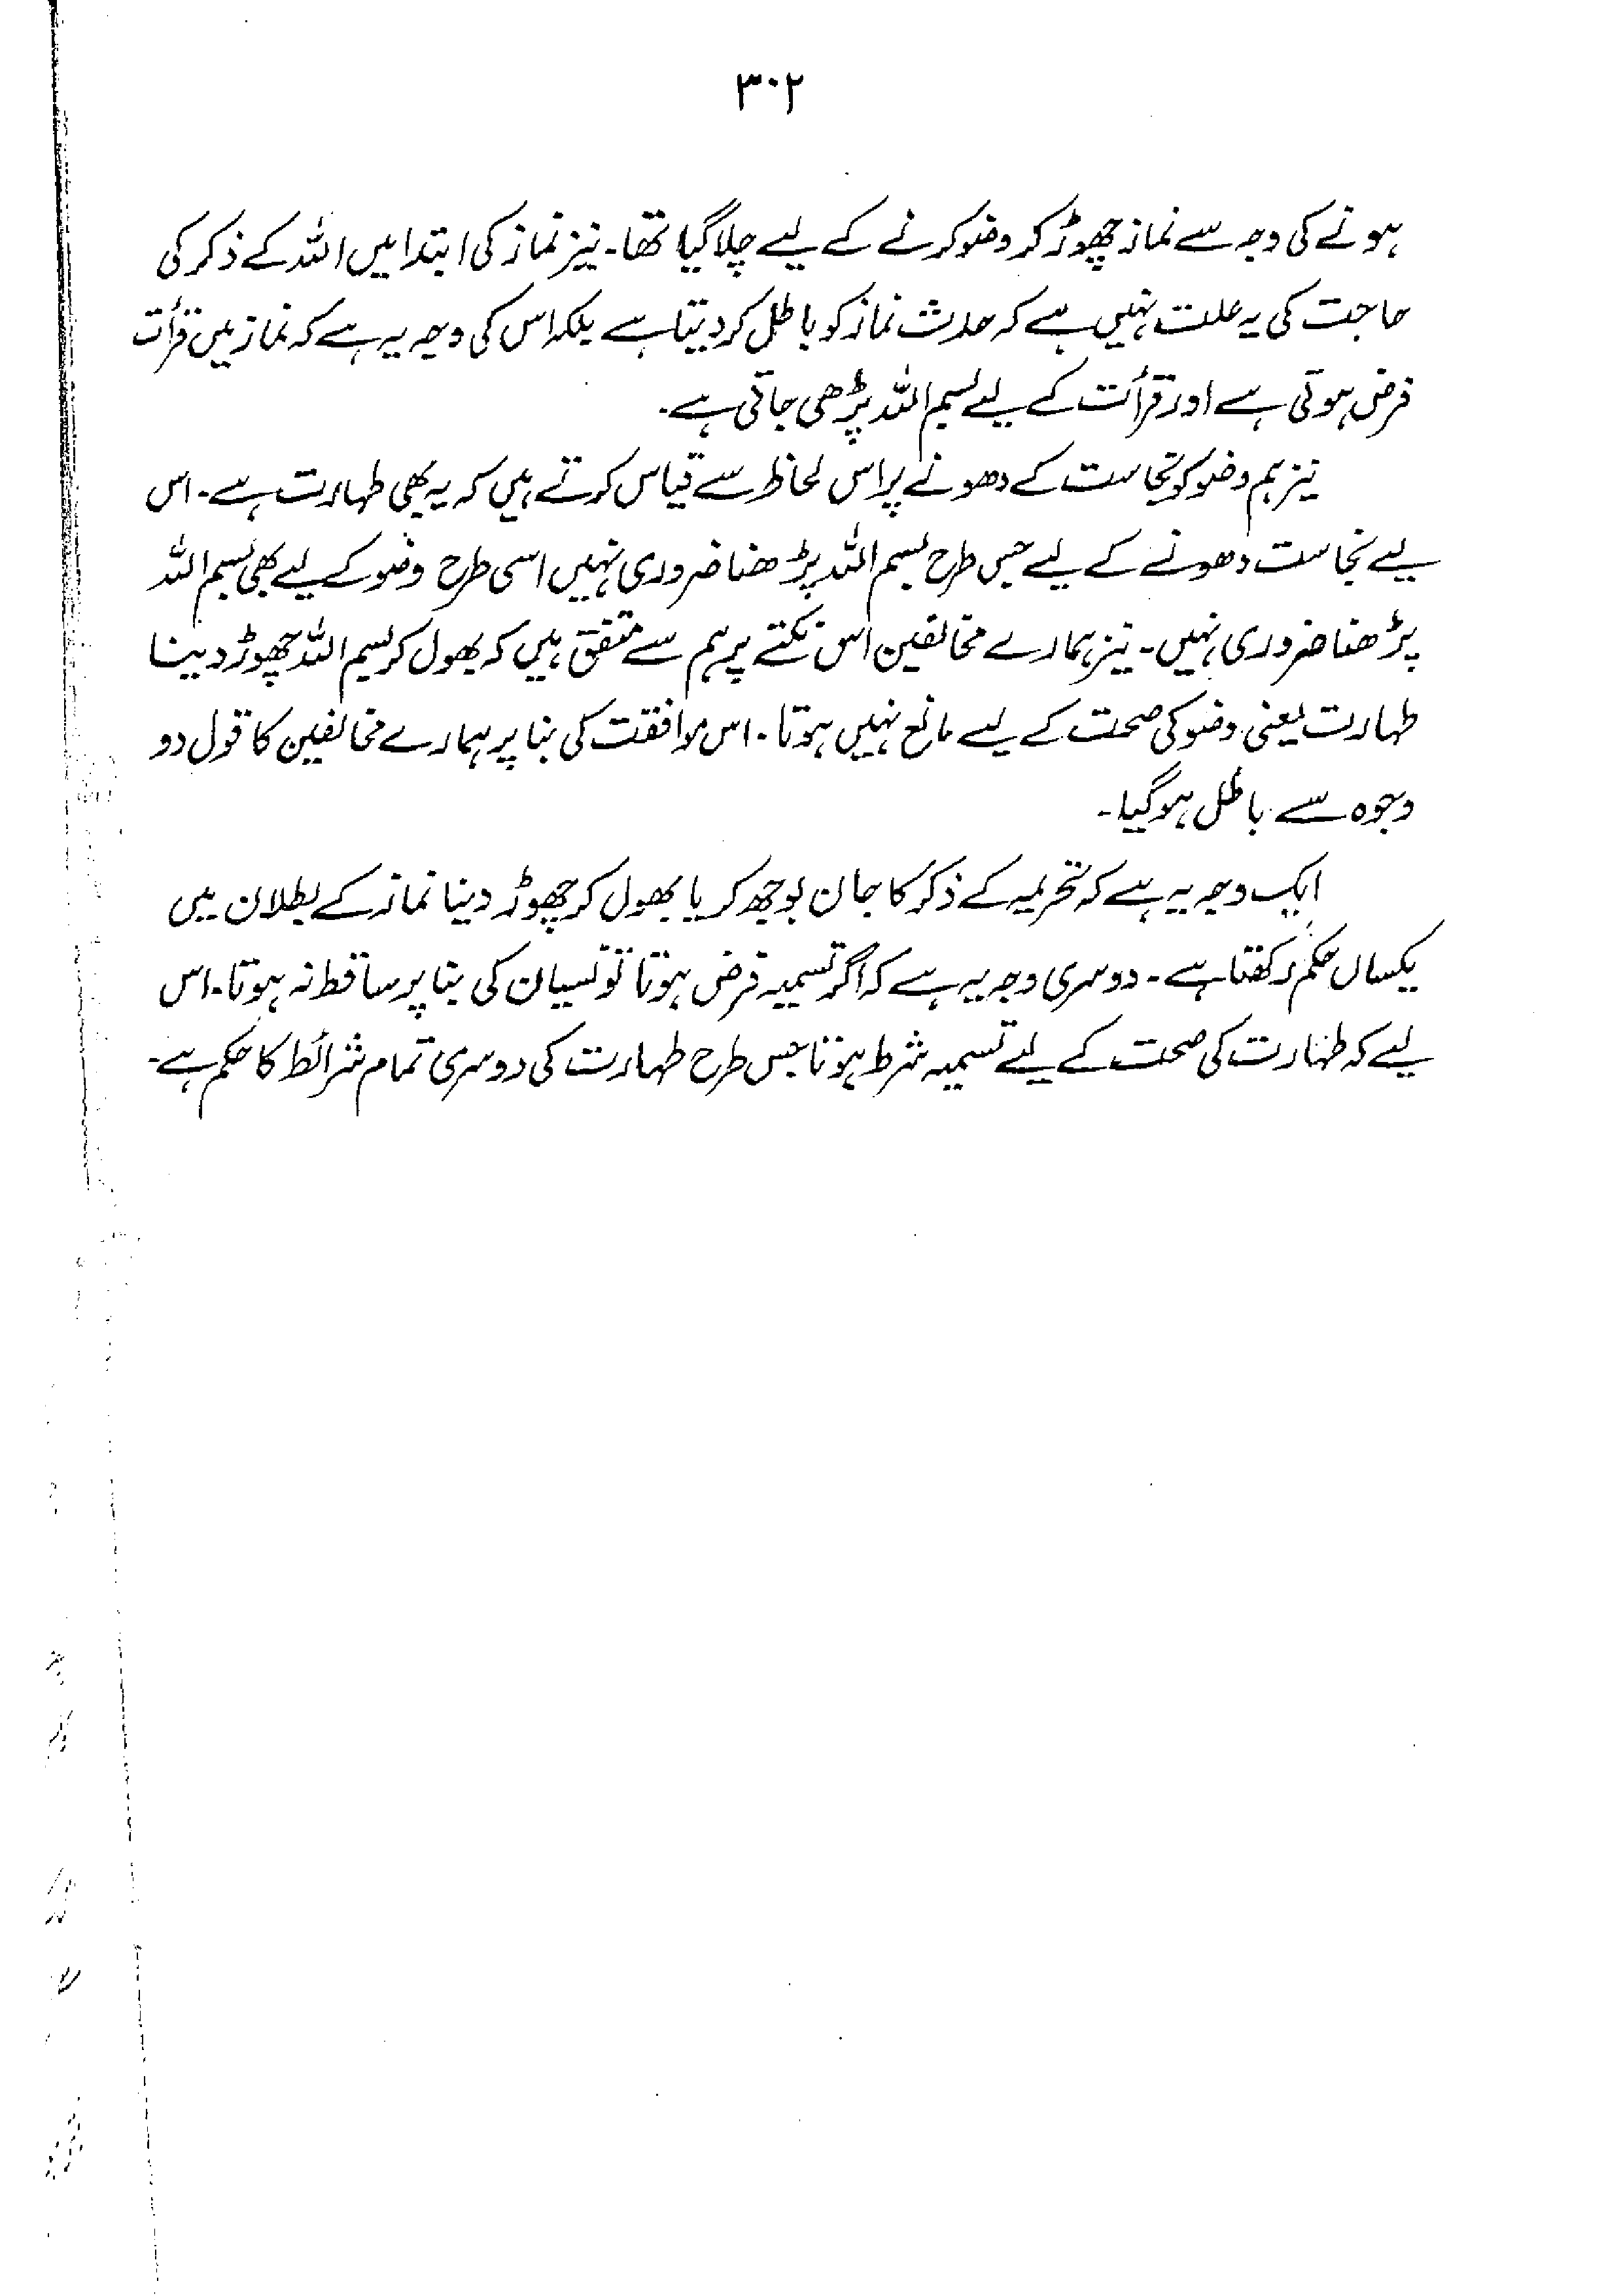 ۳۰۲
ہونے کی وجہ سے نماز چھوڑ کر وضو کرنے کے لیے چلا گیا تھا۔ نیز نماز کی ابتدا میں اللہ کے ذکر کی
حاجت کی یہ علت نہیں ہے کہ حدث نماز کو باطل کر دیتا ہے بلکہ اس کی وجہ یہ ہے کہ نماز میں قرأت
فرض ہوتی ہے اور قرأت کے لیے بسم اللہ پڑھی جاتی ہے۔
نیز ہم وضو کو نجاست کے دھونے پر اس لحاظ سے قیاس کرتے ہیں کہ یہ بھی طہارت ہے۔ اس
لیے نجاست دھونے کے لیے جس طرح بسم اللہ پڑھنا ضروری نہیں اسی طرح وضو کے لیے بھی بسم اللہ
پڑھنا ضروری نہیں۔ نیز ہمارے مخالفین اس نکتے پر ہم سے متفق ہیں کہ بھول کر بسم اللہ چھوڑ دینا
طہارت یعنی وضو کی صحت کے لیے مانع نہیں ہوتا۔ اس موافقت کی بنا پر ہمارے مخالفین کا قول دو
وجوہ سے باطل ہو گیا۔
ایک وجہ یہ ہے کہ تحریمہ کے ذکر کا جان بوجھ کر یا بھول کر چھوڑ دینا نماز کے بطلان میں
یکساں حکم رکھتا ہے۔ دوسری وجہ یہ ہے کہ اگر تسمیہ فرض ہوتا تو نسیان کی بنا پر ساقط نہ ہوتا۔ اس
لیے کہ طہارت کی صحت کے لیے تسمیہ شرط ہوتا جس طرح طہارت کی دوسری تمام شرائط کا حکم ہے۔